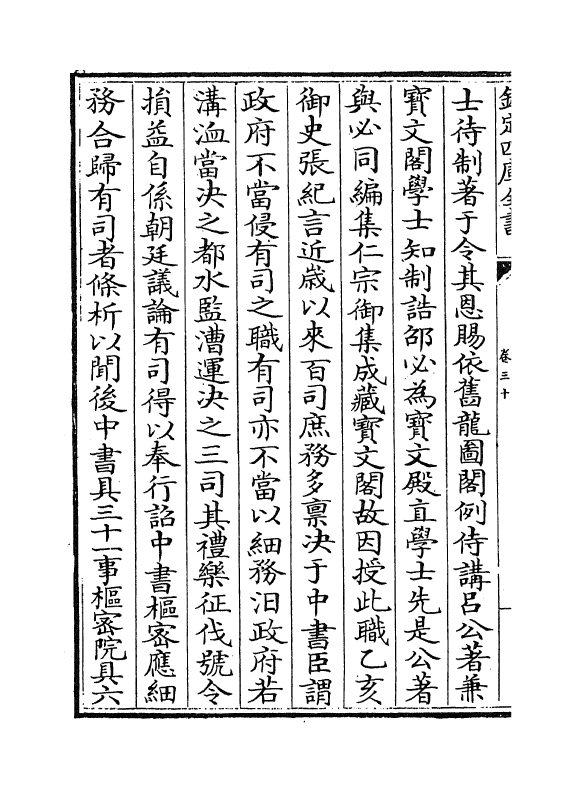 欽定四庫全書
卷三十
士待制著于令其恩賜依舊龍圖閣例侍講呂公著兼
寳文閣學士知制誥邵必為寳文殿直學士先是公著
與必同編集仁宗御集成藏寳文閣故因授此職乙亥
御史張紀言近歲以來百司庶務多禀决于中書臣謂
政府不當侵有司之職有司亦不當以細務汨政府若
溝洫當决之都水監漕運决之三司其禮樂征伐號令
損益自係朝廷議論有司得以奉行詔中書樞密應細
務合歸有司者條析以聞後中書具三十一事樞密院具六